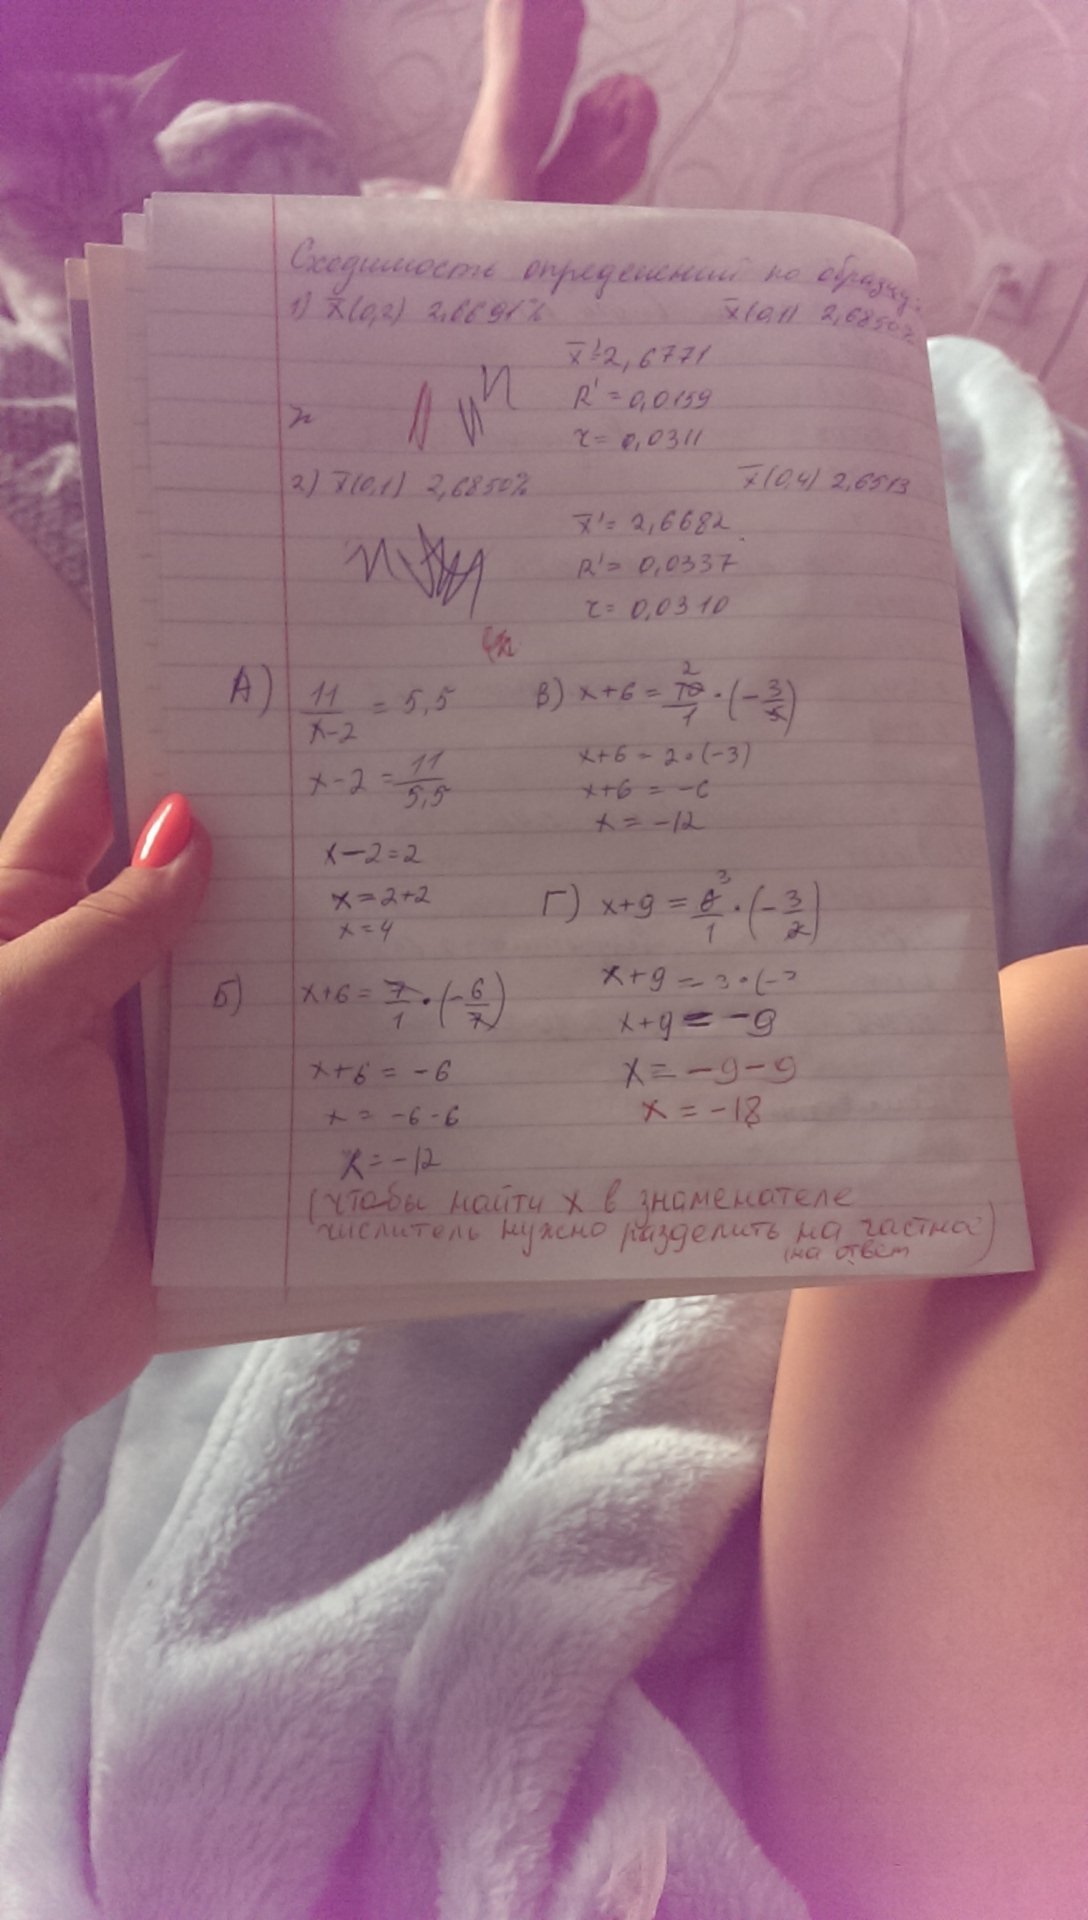 Сходимость определений по образцу.
1) x̄(0,2) 2,6691% x̄(0,1) 2,6850%
x̄'=2,6771
R'=0,0159
r=0,0311
2) x̄(0,1) 2,6850% x̄(0,4) 2,6513
x̄'=2,6682
R'=0,0337
r=0,0310
А) 11/(x-2) = 5,5
x-2 = 11/5,5
x-2=2
x=2+2
x=4
Б) x+6 = 7/1 · (-6/7)
x+6 = -6
x = -6-6
x=-12
В) x+6 = 10 2/1 · (-3/5)
x+6 = 2·(-3)
x+6 = -6
x = -12
Г) x+9 = 6 3/1 · (-3/2)
x+9 = 3·(-3
x+9 = -9
x = -9-9
x = -18
(чтобы найти x в знаменателе
числитель нужно разделить на частное)
(на ответ